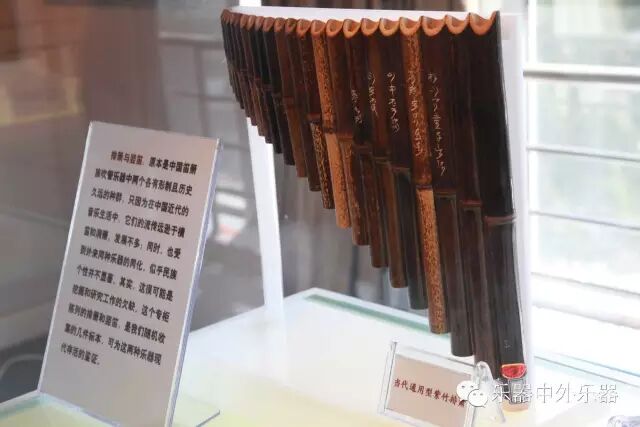 排箫与竖笛,原本是中国笛箫
族吹管乐器中两个各有形制且历史
久远的种群,只因为在中国近代的
音乐生活中,它们的流传远逊于横
笛和洞箫,发展不多;同时,也受
到外来同种乐器的同化,似乎民族
个性并不显著。其实,这很可能是
挖掘和研究工作的欠缺。这个专柜
陈列的排箫和竖笛,是我们随机收
集的几件标本,可为这两种乐器现
代存活的鉴证。
当代通用型紫竹排箫
乐器中外乐器